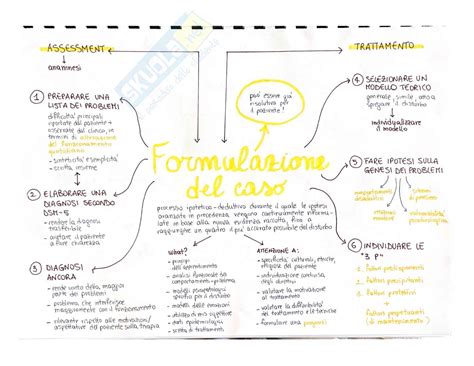 ASSESSMENT
anamnesi
TRATTAMENTO
SKUOLA
può essere già
risolutiva per
il paziente!
1 PREPARARE UNA
LISTA DEI PROBLEMI
difficoltà principali
riportate dal paziente +
osservate dal clinico, in
termini di alterazione
del funzionamento
quotidiano
- sinteticità, esemplicità
- scritta insieme
2 ELABORARE UNA
DIAGNOSI SECONDO
DSM-5
- rendere la diagnosi
trasferibile
- aiutare il paziente
a fare chiarezza
3 DIAGNOSI
ANCORA
- rende conto della maggior
parte dei problemi
- problema che interferisce
maggiormente con il funzionamento
- rilevante rispetto alle motivazioni/
aspettative del paziente sulla terapia
Formulazione
del caso
processo ipotetico-deduttivo durante il quale le ipotesi
avanzate in precedenza vengono continuamente informa-
te in base alla nuova evidenza raccolta, fino a
raggiungere un quadro il più accurato possibile del disturbo
what?
- principi
dell'apprendimento
- analisi funzionale del
comportamento-problema
- modelli eziopatologici
specifici per il disturbo
- modelli delle emozioni
- utilizzo di mia cognitive
- dati epidemiologici
- scelta di trattamenti
ATTENZIONE A:
- specificità culturali, etniche,
religiose del paziente
- individuare condivisa
degli obiettivi
- valutare la motivazione
al trattamento
- validare la difficoltà
del trattamento e le tecniche
- formulare una prognosi
4 SELEZIONARE UN
MODELLO TEORICO
generale, simile, atto a
spiegare il disturbo
individualizzare
il modello
5 FARE IPOTESI SULLA
GENESI DEI PROBLEMI
comportamenti
disadattivi
schemi di
pensiero
6 INDIVIDUARE LE
"3 P"
1. fattori predisponenti
+
2. fattori precipitanti
+
3. fattori perpetuanti
(di mantenimento)